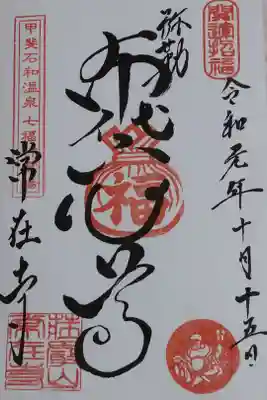 開運招福
令和元年十月十五日
彌勒
布袋尊
福
甲斐石和温泉七福
常在寺
常在寺